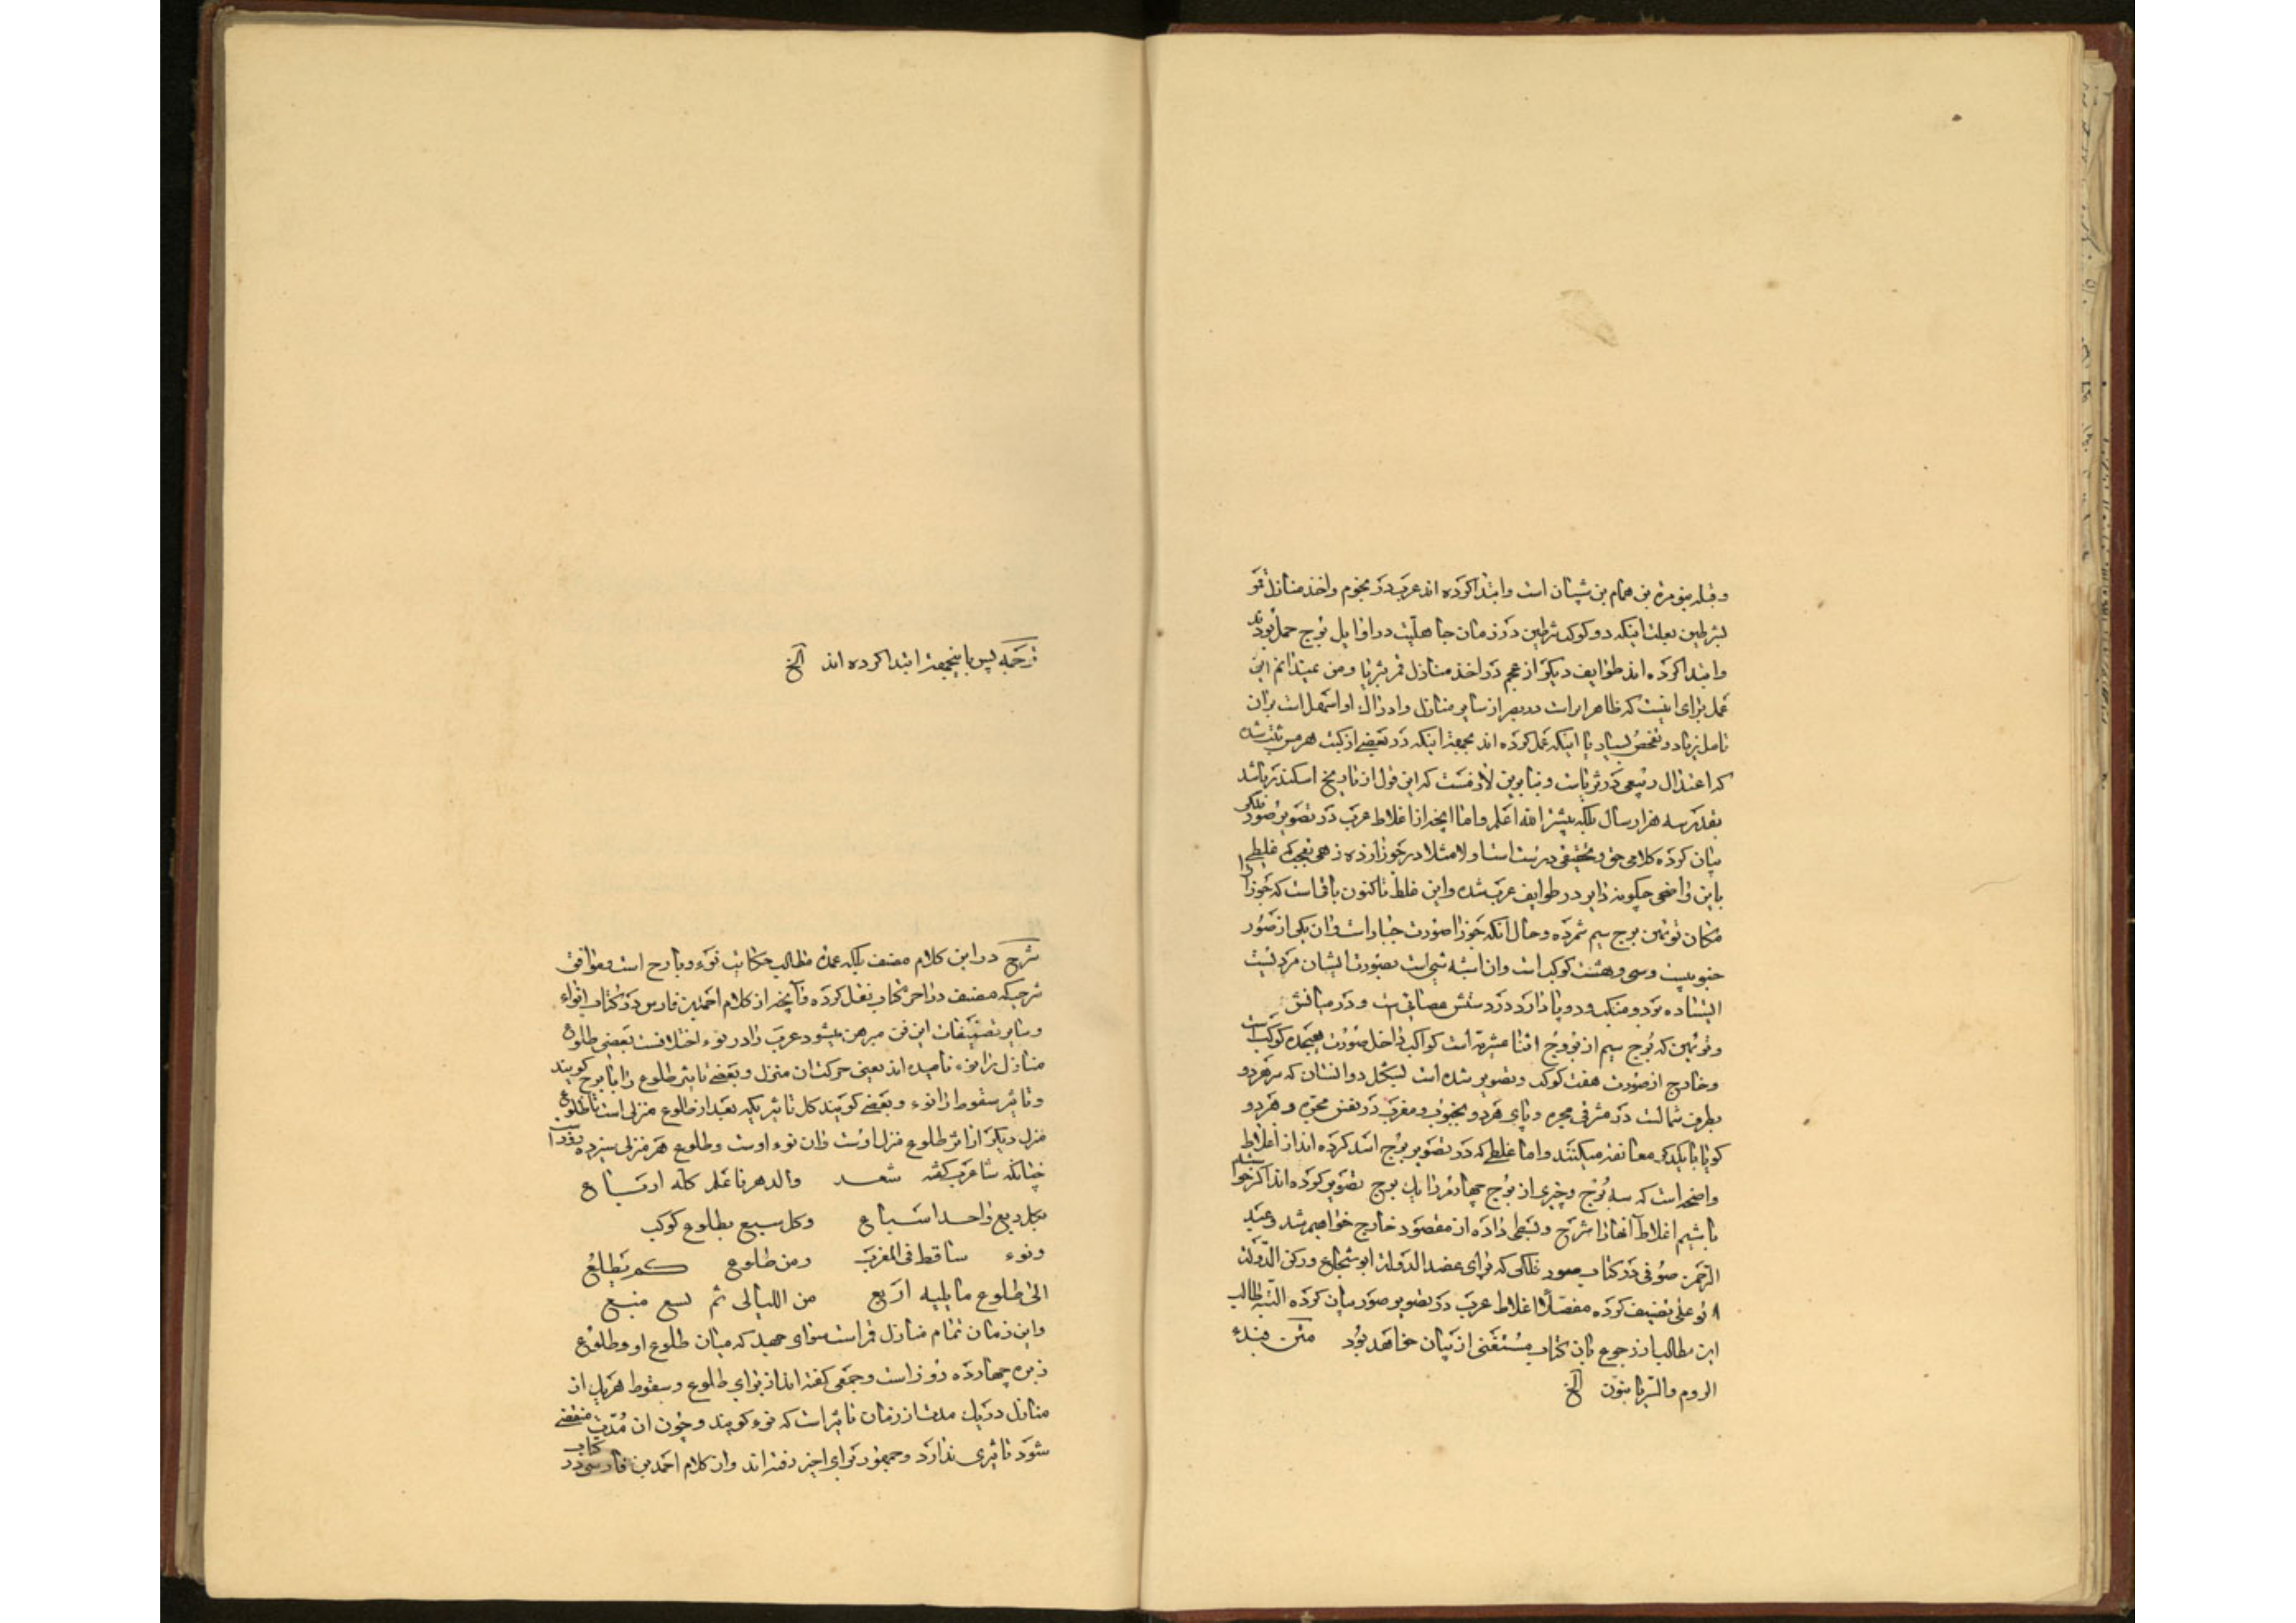 وقبله بنو مرة بن همام بن شیبان است وابتدا کرده اند عرب در نجوم واخذ منازل قمر
بشرطین بعلت اینکه دو کوکب شرطین در زمان جاهلیت در اوایل برج حمل بودند
وابتدا کرده اند طوایف دیگر از عجم در اخذ منازل قمر بثریا ومن نمیدانم این
عمل برای اینست که ظاهر تراست در بصر از سایر منازل وادراک او اسهل است بدان
تامل زیاد وتفحص بسیار یا اینکه عمل کرده اند بجهة اینکه در بعضی از کتب هرمس ثبت شده
که اعتدال ربیعی در ثریاست وبنابرین لازمست که این قول از تاریخ اسکندر باشد
بقدر سه هزار سال بلکه بیشتر الله اعلم واما انچه از اغلاط عرب در تصویر صور فلکی
بیان کرده کلامی حق وتحقیقی درست است اولا مثلا در جوزا زده زهی تعجب که غلطی
باین واضحی چگونه دایر در طوایف عرب شده واین غلط تاکنون باقیاست که جوزا را
مکان توئمین برج سیم شمرده وحال آنکه جوزا صورت جبار است وان یکی از صور
جنوبیست وسی وهشت کوکب است وان اشبه شیی است بصورت انسان مردیست
ایستاده بود ومنکب ودو پا دارد در دستش عصائی است ودر میانش
وتوئمین که برج سیم از بروج اثنا عشریه است کواکب داخل صورت هیجده کوکب است
وخارج از صورت هفت کوکب وتصویر شده است بشکل دو انسان که سر هر دو
بطرف شمالست در مشرقی مجره وپای هر دو بجنوب ومغرب در نفس مجره وهر دو
کویا با یکدیگر معانقه میکنند واما غلطی که در تصویر برج اسد کرده اند از اغلاط
واضحه است که سه برج وچیزی از برج چهارم را یک برج تصویر کرده اند اکر خواسته
باشیم اغلاط آنها را شرح وبسطی داده از مقصود خارج خواهیم شد وعبد
الرحمن صوفی در کتاب صور فلکی که برای عضد الدولة ابو شجاع ورکن الدوله
ابو علی تصنیف کرده مفصلا اغلاط عرب در تصویر صور بیان کرده البته طالب
این مطالب از رجوع بان کتاب مستغنی از بیان خواهد بود متن فبدء
الروم والسریانیون الخ
ترجمه پس باینجهة ابتدا کرده اند الخ
شرح در این کلام مصنف بلکه عمده مطالب حکایت نوء وبارح است وموافق
شرحیکه مصنف در اخر کتاب نقل کرده وآنچه از کلام احمد بن فارس در کتاب انواء
وسایر تصنیفات این فن مبرهن میشود عرب را در نوء اختلافست بعضی طلوع
منازل را نوء نامیده اند یعنی حرکت ان منزل وبعضی تاثیر طلوع را بارح کویند
وتاثیر سقوط را نوء وبعضی کویند کل تاثیر یکه بعد از طلوع منزلی است تا طلوع
منزل دیگر از اثر طلوع منزل اوست وان نوء اوست وطلوع هر منزلی سیزده روز است
چنانکه شاعر عرب گفته شعر والدهر فاعلم کله ارباع
بکل ربع واحد اسباع وکل سبع بطلوع کوکب
ونوء ساقط فی المغرب ومن طلوع کم تطلع
الی طلوع ما یلیه اربع من اللیالی ثم تسع منبع
واین زمان تمام منازل قمر است سوای جبهه که میان طلوع او وطلوع
زبره چهارده روز است وجمعی گفته اند از برای طلوع وسقوط هر یک از
منازل در یک مدت از زمان تاثیر است که نوء کویند وچون ان مدت منقضی
شود تاثیری ندارد وجمهور برای اخیر رفته اند وان کلام احمد بن فارسی در کتاب